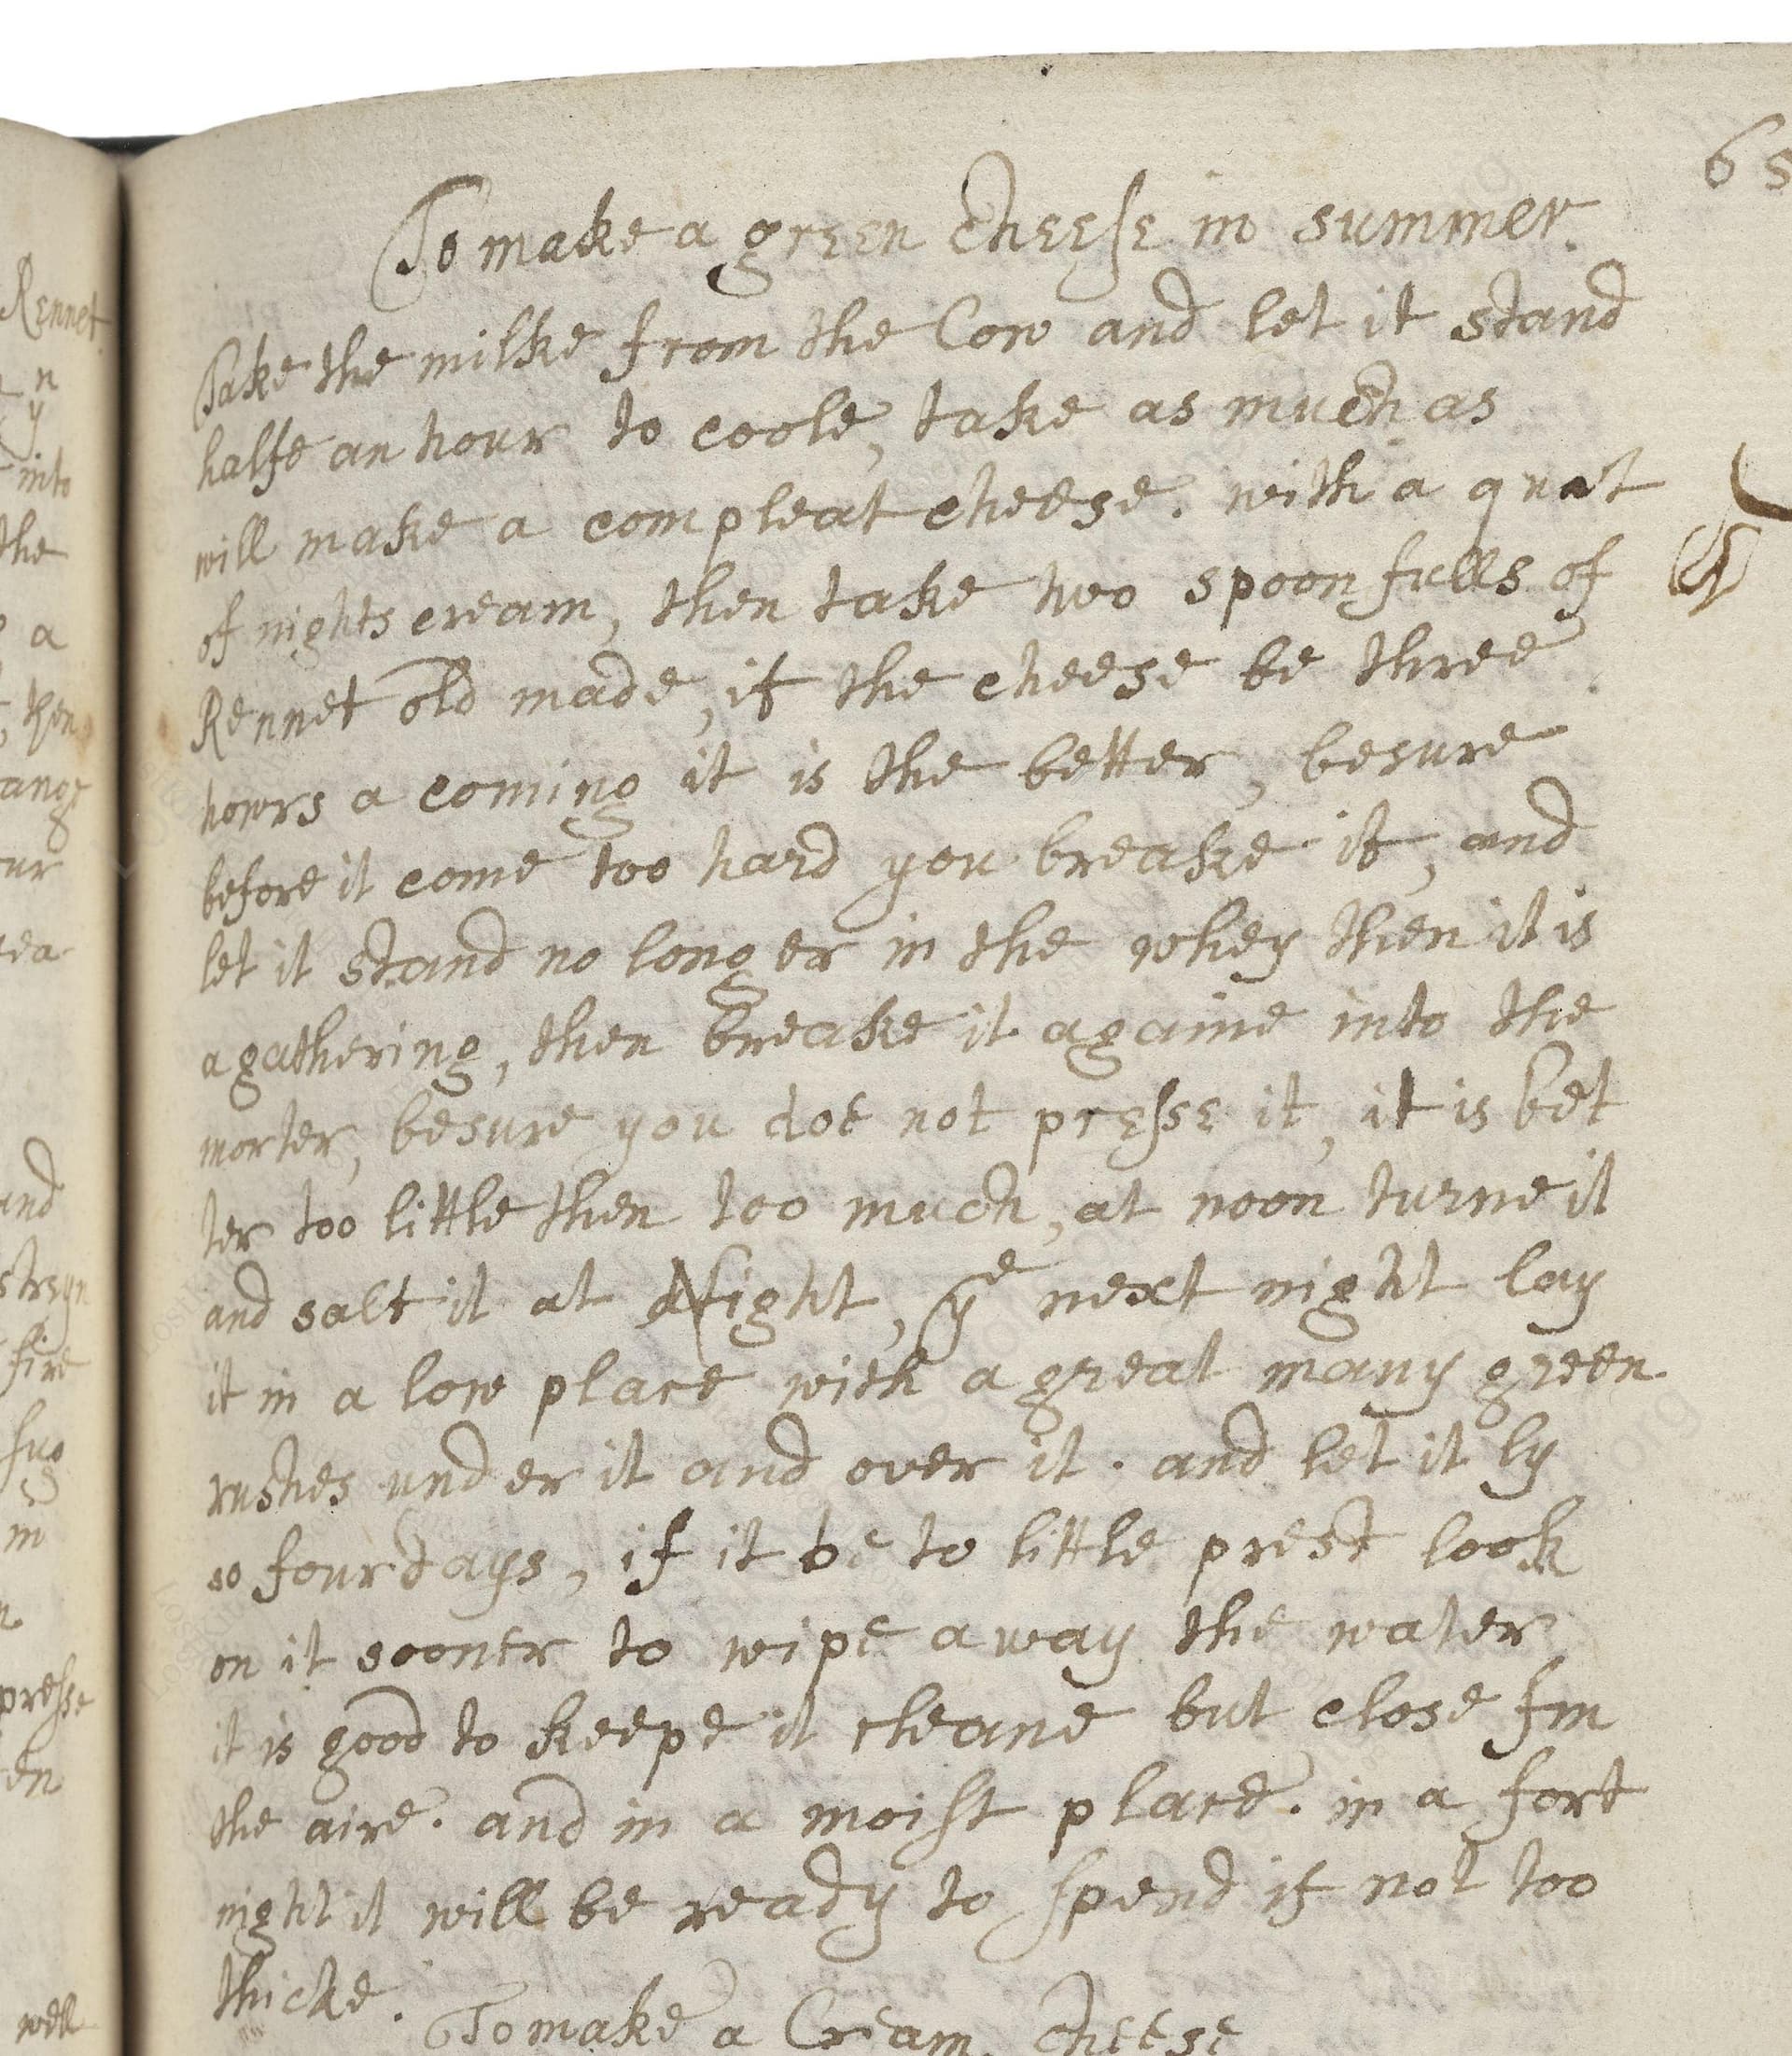 65
To make a green cheese in summer.
Take the milke from the Cow and let it stand
halfe an hour to coole, take as much as
will make a compleat cheese. with a quat
of nights cream, then take two spoonfulls of
Rennet old made, if the cheese be three
howrs a coming it is the better, besure
before it come too hard you breake it, and
let it stand no longer in the whey then it is
a gathering, then breake it againe into the
morter, besure you doe not presse it, it is bet
ter too little then too much, at noon turne it
and salt it at Night, ye next night lay
it in a low place with a great many green
rushes under it and over it. and let it ly
so four days, if it be to little prest look
on it sooner to wipe away the water
it is good to keepe it cleane but close fm
the aire. and in a moist place. in a fort
night it will be ready to spend if not too
thicke.
To make a Cream cheese
Rennet
n
y
into
the
a
then
ange
ur
and
streyn
fire
sug
in
presse
en
well